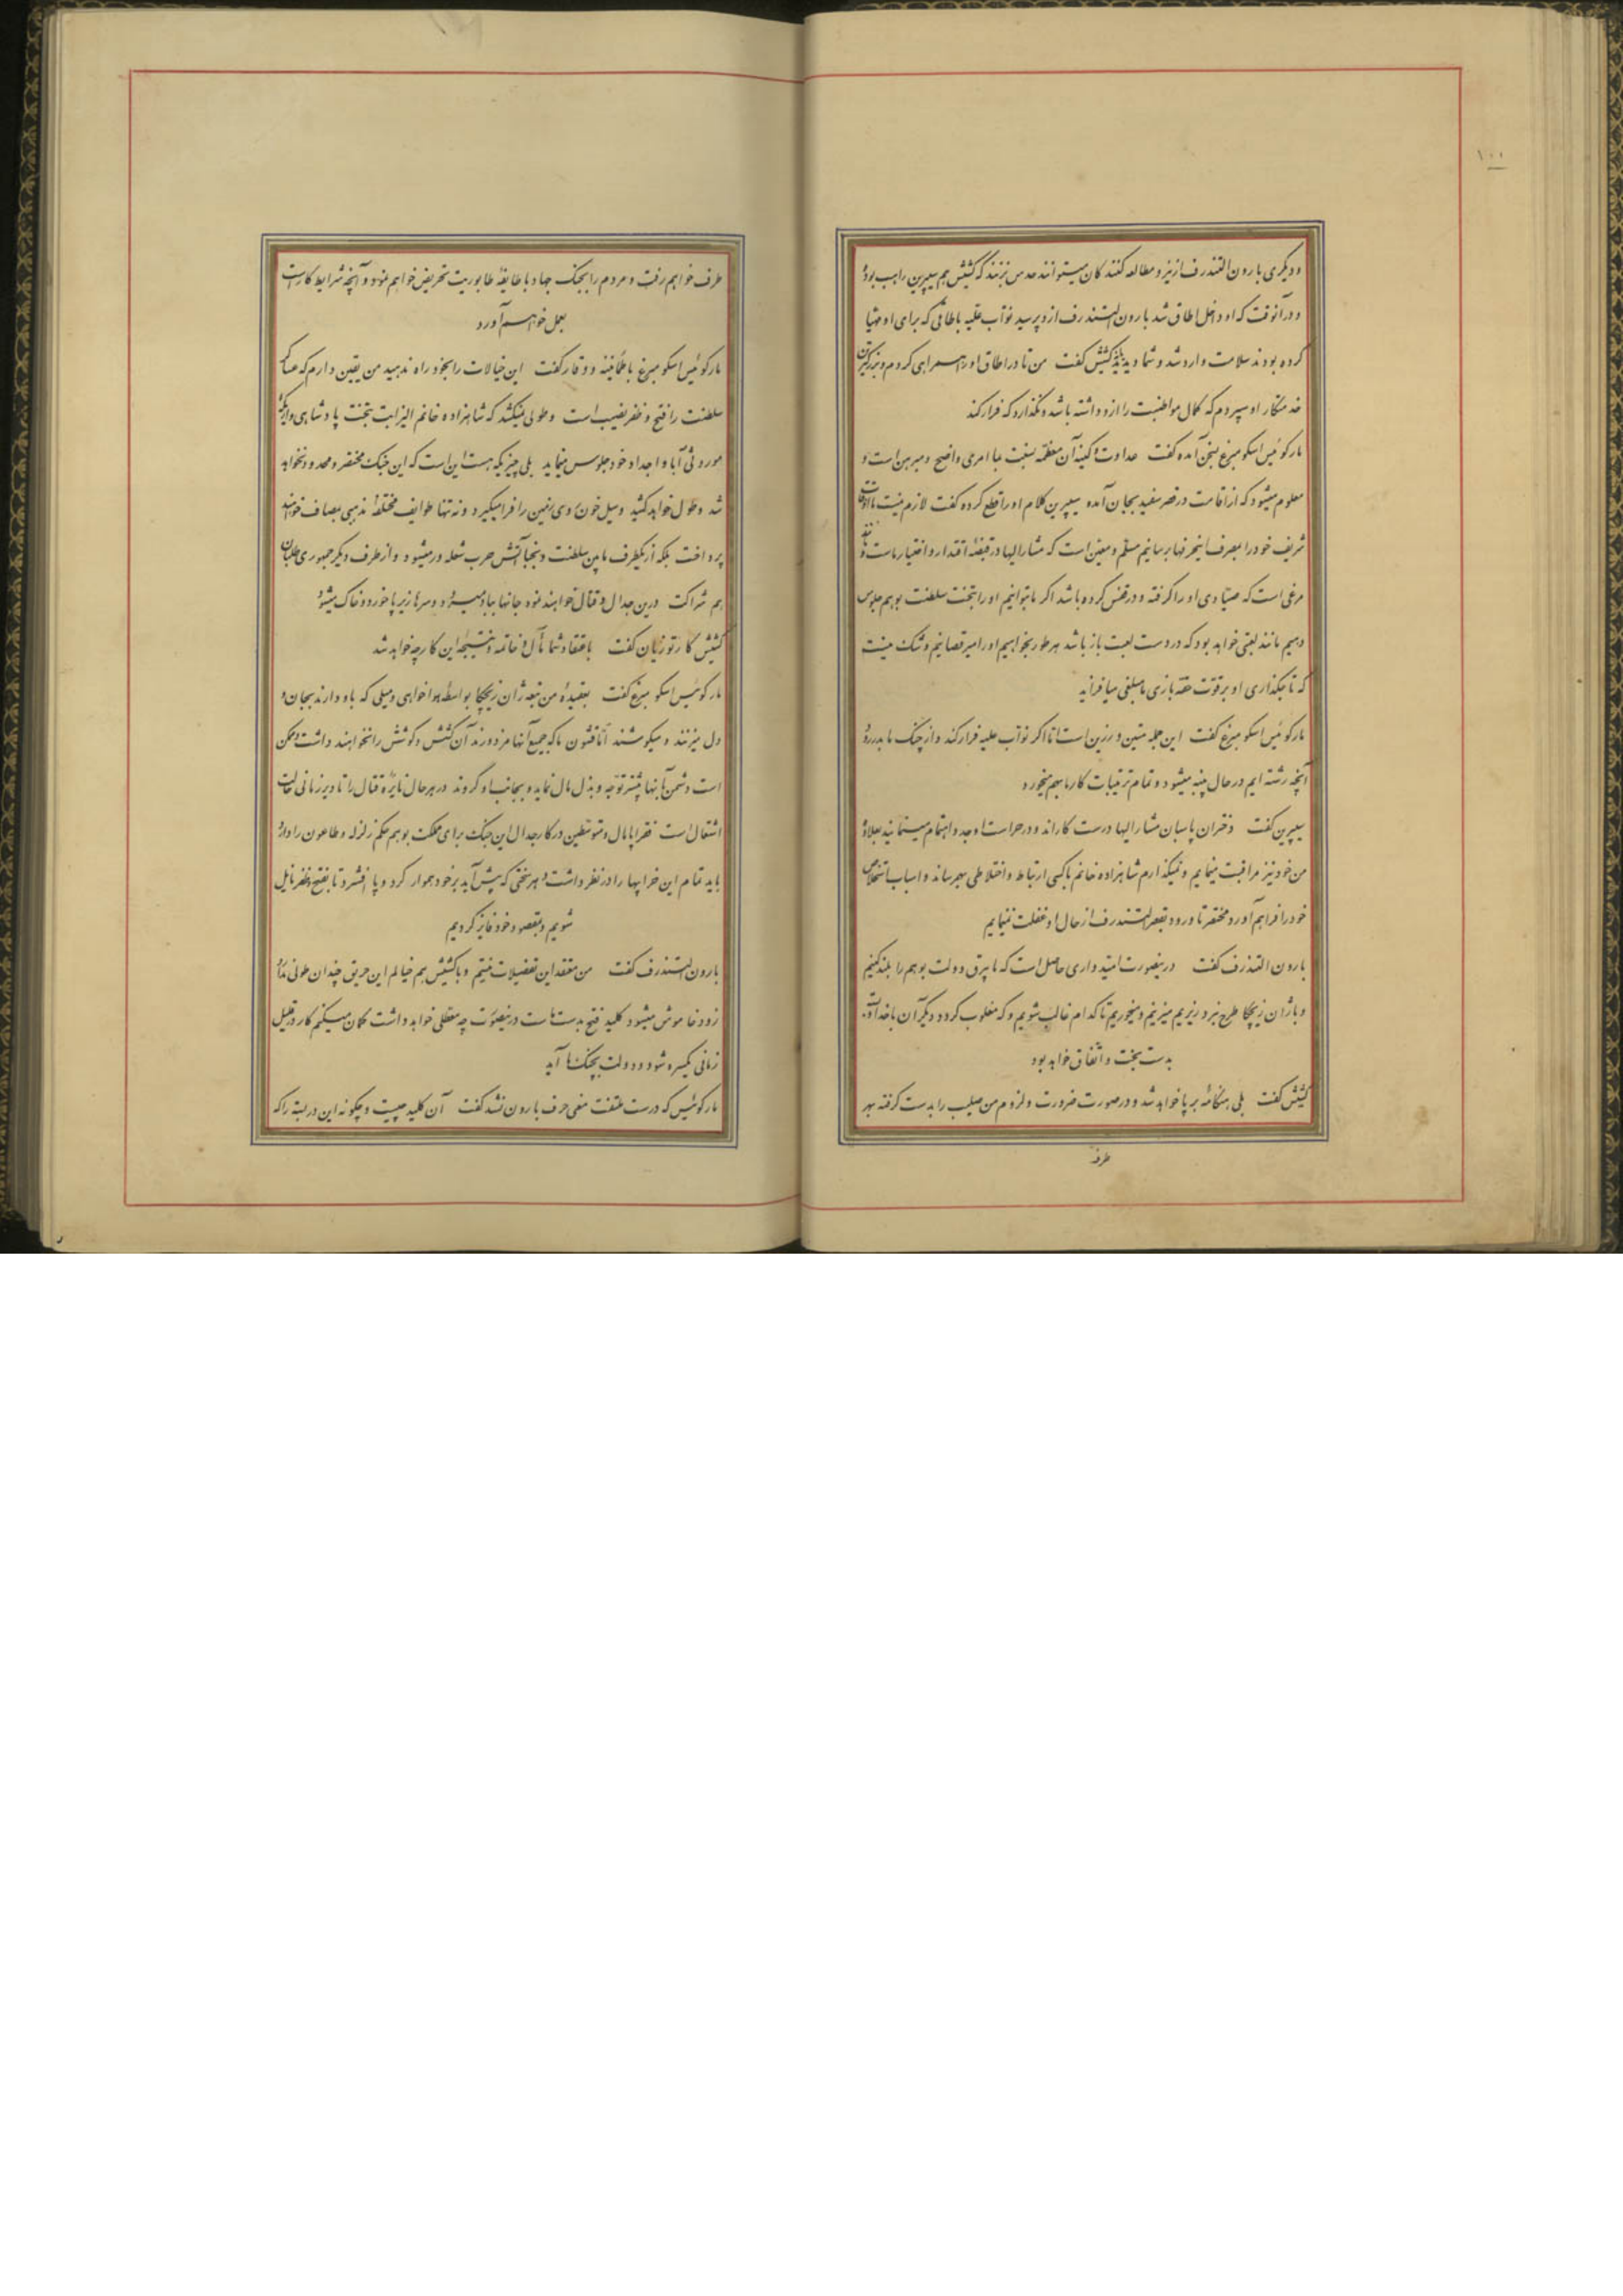 ۱۰۰
و دیگری بارون التندرف از نیز و مطالعه کنندکان میتوانند حدس بزنند که کشیش هم سیپرین راهب بود
و در آنوقت که او داخل اطاق شد بارون التندرف ازو پرسید نواب علیه باطاقی که برای او مهیا
کرده بودند سلامت وارد شد و شما دیدید کشیش کفت من تا در اطاق او همراهی کردم و بزرکترین
خدمتکار او سپردم که کمال مواظبت را ازو داشته باشد و نکذارد که فرار کند
مارکوئیس اسکومبرغ بسخن آمده کفت عداوت و کینه آن معظمه نسبت بما امری واضح و مبرهن است و
معلوم میشود که از اقامت در قصر سفید بجان آمده سیپرین کلام او را قطع کرده کفت لازم نیست ما اوقات
شریف خود را بمصرف اینحرفها برسانیم مسلم و معین است که مشارالیها در قبضه اقتدار و اختیار ماست و
مرغی است که صیادی او را کرفته و در قفس کرده باشد اکر ما بتوانیم او را بتخت سلطنت بوهم جلوس
دهیم مانند لعبتی خواهد بود که در دست لعبت باز باشد هر طور بخواهیم او را میرقصانیم و شک نیست
که تاجکذاری او بر قوت حقه بازی ما مبلغی میافزاید
مارکوئیس اسکومبرغ کفت این جمله متین و رزین است اما اکر نواب علیه فرار کند و از چنک ما بدر رود
آنچه رشته ایم در حال پنبه میشود و تمام ترتیبات کار ما بهم میخورد
سیپرین کفت دختران پاسبان مشارالیها درست کارند و در حراست او جد و اهتمام مینمایند بعلاوه
من خود نیز مراقبت مینمایم و نمیکذارم شاهزاده خانم با کسی ارتباط و اختلاطی بهم رساند و اسباب استخلاص
خود را فراهم آورد مختصر تا ورود بقصر التندرف از حال او غفلت ننمایم
بارون التندرف کفت درینصورت امیدواری حاصل است که ما بیرق دولت بوهم را بلند کنیم
و با ژان زیچکا طرح نبرد ریزیم میزنیم و میخوریم تا کدام غالب شویم و که مغلوب کردد دیکر آن با خداوند
بدست بخت و اتفاق خواهد بود
کشیش کفت بلی هنکامه برپا خواهد شد و در صورت ضرورت و لزوم من صلیب را بدست کرفته بهر
طرف
طرف خواهم رفت و مردم را بجنک جهاد با طایفه طابوریت تحریض خواهم نمود و آنچه شرایط کار است
بعمل خواهم آورد
مارکوئیس اسکومبرغ با طمأنینه و وقار کفت این خیالات را بخود راه ندهید من یقین دارم که عساکر
سلطنت را فتح و ظفر نصیب است و طولی نمیکشد که شاهزاده خانم الیزابت بتخت پادشاهی و اریکه
موروثی آبا و اجداد خود جلوس مینماید بلی چیزیکه هست این است که این جنک مختصر و محدود نخواهد
شد و طول خواهد کشید و سیل خون روی زمین را فرا میکیرد و نه تنها طوایف مختلفه مذهبی بمصاف خواهند
پرداخت بلکه از یکطرف مابین سلطنت و نجبا آتش حرب شعله ور میشود و از طرف دیکر جمهوری طلبان
هم شراکت درین جدال و قتال خواهند نمود جانها بباد میرود و سرها زیر پا خورد و خاک میشود
کشیش کارتوزیان کفت باعتقاد شما مآل و خاتمه و نتیجه این کار چه خواهد شد
مارکوئیس اسکومبرغ کفت بعقیده من تبعه ژان زیچکا بواسطه هواخواهی و میلی که باو دارند بجان و
دل میزنند و میکوشند اما قشون ما که جمیع آنها مزدورند آن کشش و کوشش را نخواهند داشت و ممکن
است دشمن بآنها بیشتر توجه و بذل مال نماید و بجانب او کروند در هر حال نایره قتال را تا دیر زمانی حالت
اشتعال است فقرا پامال و متوسطین در کار جدال این جنک برای مملکت بوهم حکم زلزله و طاعون را دارد
باید تمام این خرابیها را در نظر داشت و هر سختی که پیش آید بر خود هموار کرد و پا افشرد تا بفتح و ظفر نایل
شویم و بمقصود خود فایز کردیم
بارون التندرف کفت من معتقد این تفصیلات نیستم و با کشیش هم خیالم این حریق چندان طولی ندارد
زود خاموش میشود کلید فتح بدست ماست درینصورت چه معطلی خواهد داشت کمان میکنم کار در قلیل
زمانی یکسره شود و دولت بچنک ما آید
مارکوئیس که درست ملتفت معنی حرف بارون نشد کفت آن کلید چیست و چکونه این در بسته را که